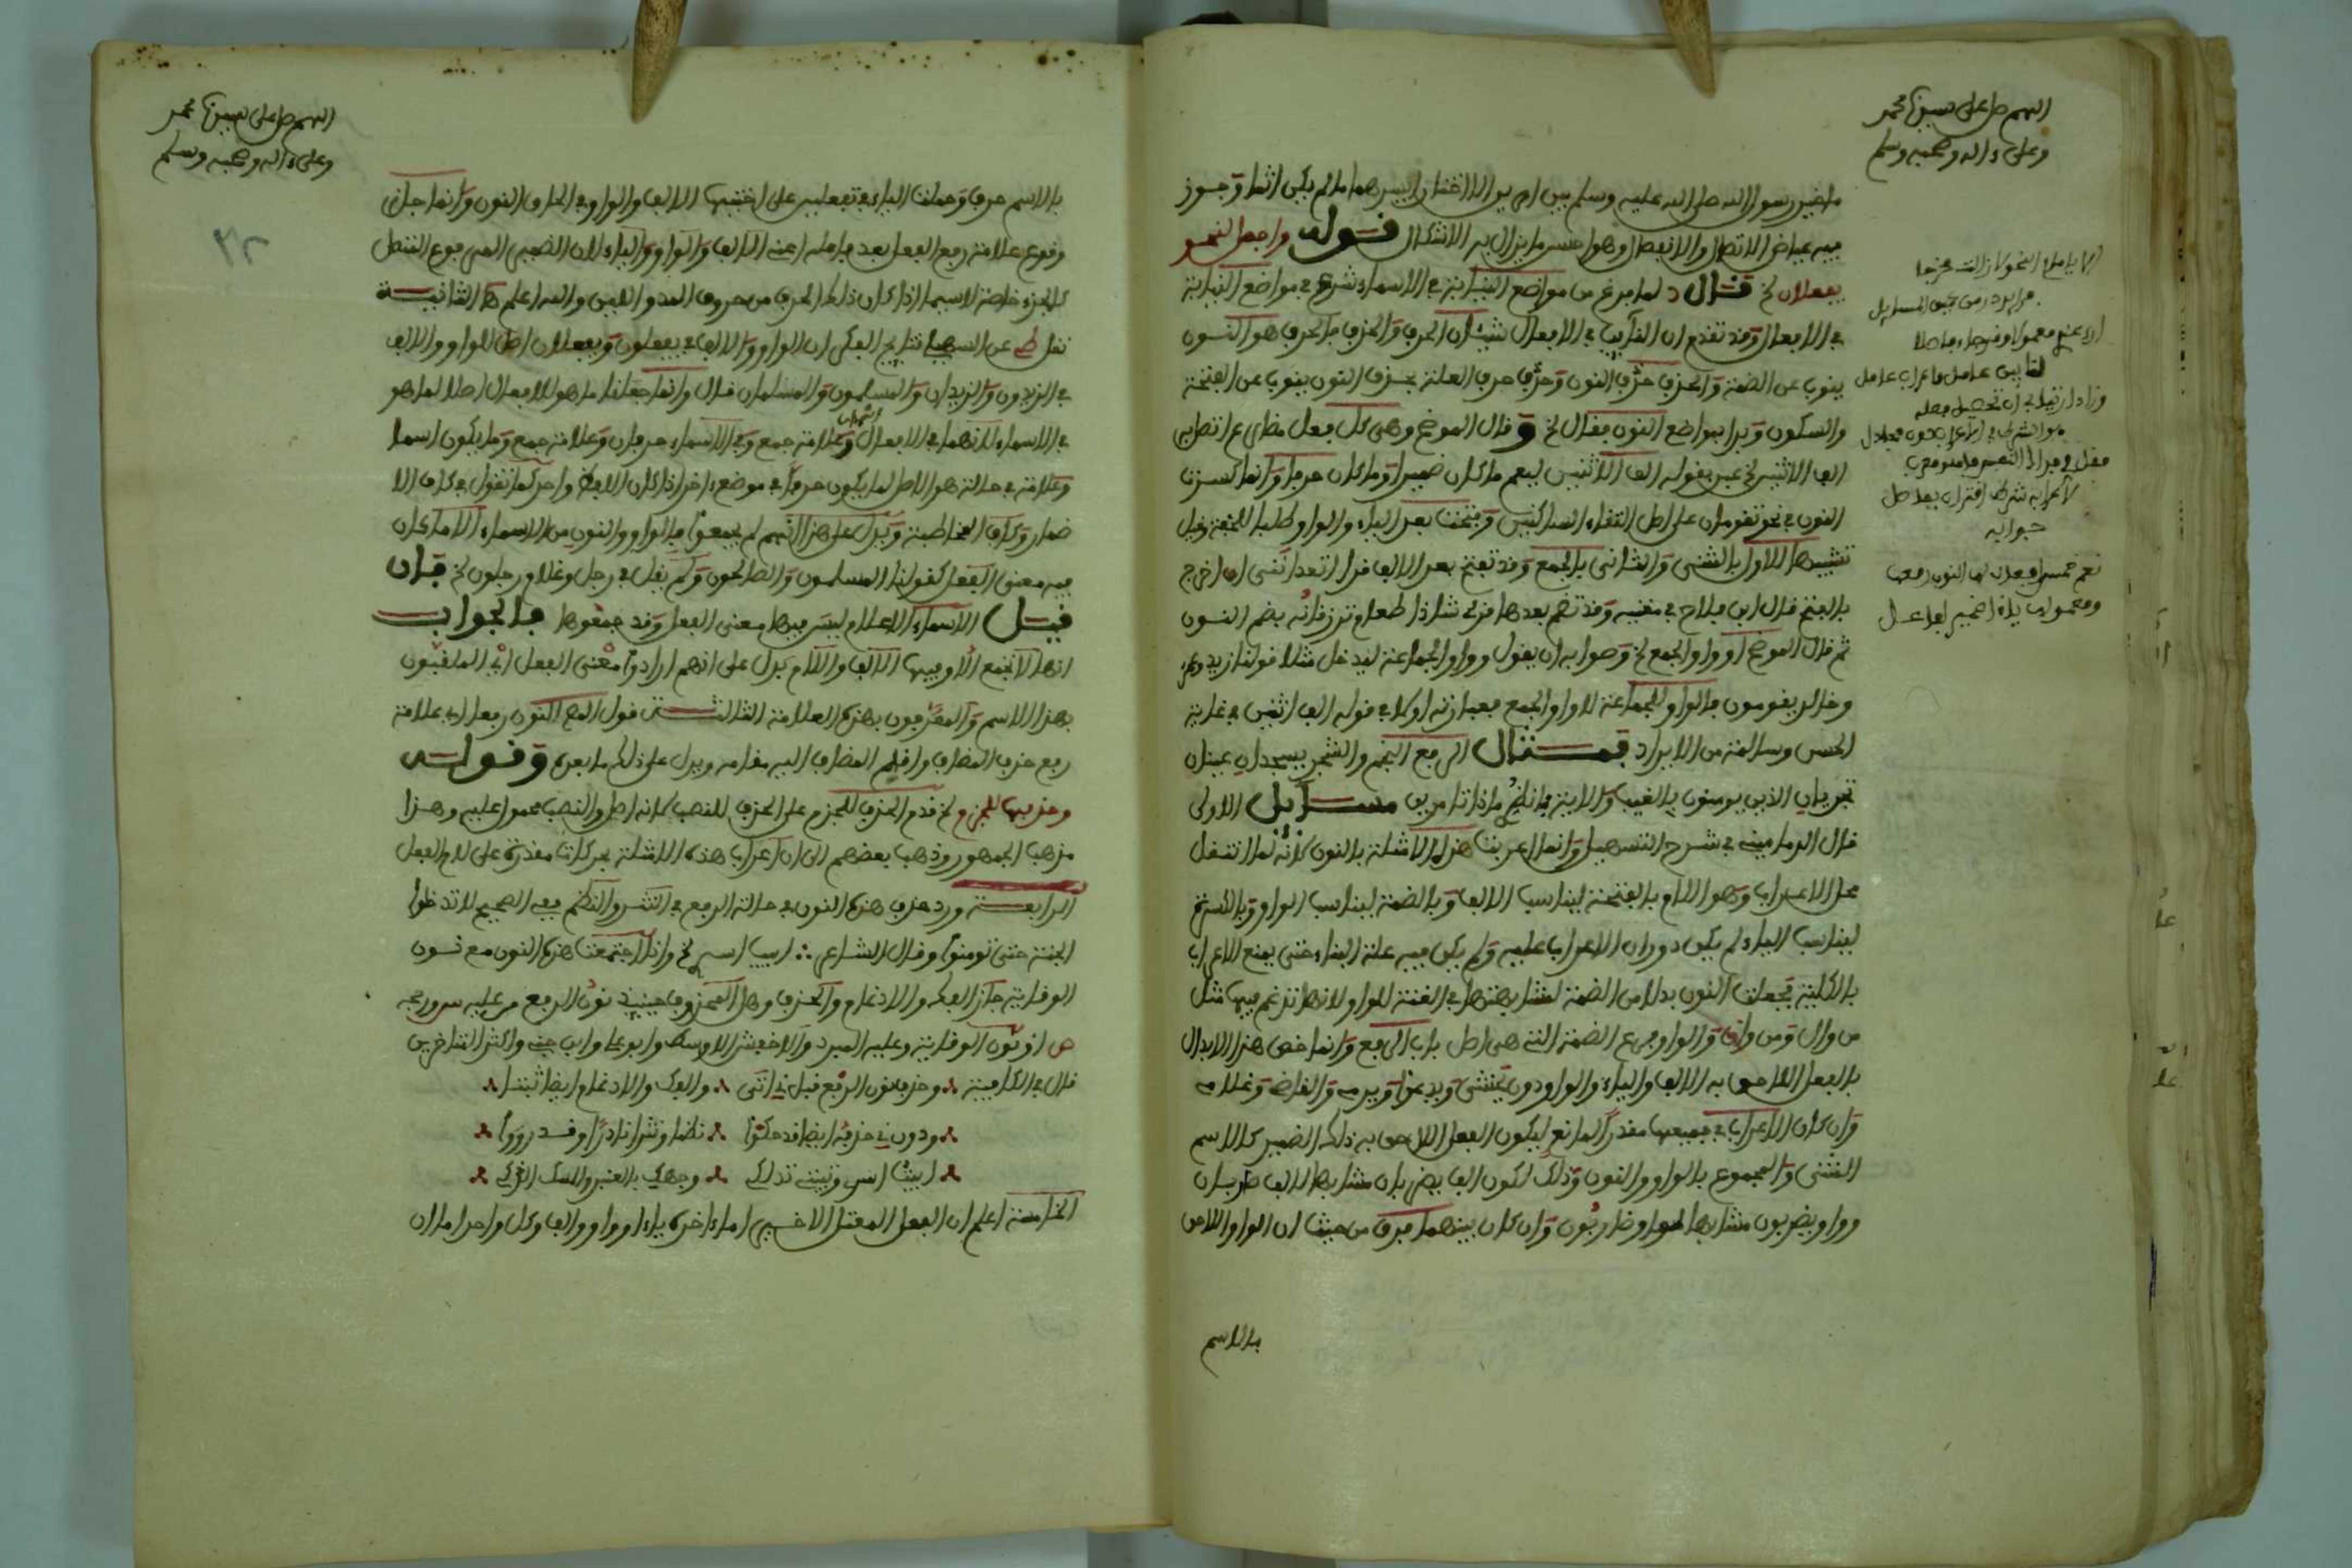 اللهم صل على سيدنا محمد
وعلى ءاله وصحبه وسلم
ما خير رسول الله صلى الله عليه وسلم بين امرين الا اختار ايسرهما ما لم يكن اثما وجوز
فيه عياض الاتصال والانفصال وهو احسن ما يزال به الاشكال قوله واجعل لنحو
يفعلان لخ قال د لما فرغ من مواضع النيابة في الاسماء شرع في مواضع النيابة
في الافعال وقد تقدم ان النائب في الافعال شيئان الحرف والحذف فالحرف هو النون
ينوب عن الضمة والحذف حذف النون وحذف حرف العلة فحذف النون ينوب عن الفتحة
والسكون وبدا بمواضع النون فقال لخ وقال الموضح وهي كل فعل مضارع اتصل به
الف الاثنين لخ عبر بقوله الف الاثنين ليعم ما كان ضميرا وما كان حرفا وانما كسرت
النون في نحو تقومان على اصل التقاء الساكنين وفتحت بعد الياء والواو طلبا للخفة وقيل
تشبيها للاول بالمثنى والثاني بالجمع وقد تفتح بعد الالف قرا اتعدانني ان اخرج
بالفتح قال ابن فلاح في مغنيه وقد تضم بعدها قرئ شاذا طعام ترزقانه بضم النون
ثم قال الموضح او واو الجمع لخ وصوابه ان يقول وواو الجماعة ليدخل مثل قولنا زيد وعمر
وخالد يقومون فالواو للجماعة لا واو الجمع فعبارته اولا في قوله الف اثنين في غاية
الحسن وسالمة من الايراد قمثال الرفع النجم والشجر يسجدان عينان
تجريان الذين يومنون بالغيب والاية فانظري ماذا تامرين مسائل الاولى
قال الدماميني في شرح التسهيل وانما اعربت هذه الامثلة بالنون لانه لما اشتغل
محل الاعراب وهو اللام بالفتحة ليناسب الالف وبالضمة ليناسب الواو وبالكسرة
ليناسب الياء لم يكن دوران الاعراب عليه ولم يكن فيه علة البناء حتى يمنع الاعراب
بالكلية فجعلت النون بدلا من الضمة لمشابهتها في الغنة للواو ولانها تدغم فيها مثل
من وال ومن واق والواو فرع الضمة التي هي اصل باب الرفع وانما خص هذا الابدال
بالفعل اللاحق به الالف والياء والواو دون يخشى ويدعو ويرمي والقاضي وغلامي
وان كان الاعراب في جميعها مقدرا لمانع ليكون الفعل اللاحق به ذلك الضمير كالاسم
المثنى والمجموع بالواو والنون وذلك لكون الف يضربان مشابها لالف ضاربان
وواو يضربون مشابها لواو ضاربون وان كان بينهما فرق من حيث ان الواو اللاحق
بالاسم
نعم خمس افعال لها النون رفعها
جوابه
اللهم صل على سيدنا محمد
وعلى ءاله وصحبه وسلم
بالاسم حرف وحملت الياء في تفعلين على اختيها الالف والواو في الحاق النون وانما جاز
وقوع علامة رفع الفعل بعد فاعله اعني الالف والواو والياء لان الضمير المرفوع المتصل
كالجزء خاصة لاسيما اذا كان ذلك الحرف من حروف المد واللين والله اعلم ها الثانية
نقل عن السهيلي في نتائج الفكر ان الواو والالف في يفعلون ويفعلان اصل للواو والالف
في الزيدون والزيدان والمسلمون والمسلمان قال وانما جعلنا ما هو للافعال اصلا لما هو
في الاسماء لانهما في الافعال اسمان وعلامة جمع وفي الاسماء حرفان وعلامة جمع وما يكون اسما
وعلامة في حالة هو الاصل لما يكون حرفا في موضع ءاخر اذا كان اللفظ واحد كما نقول في كاف الا
ضمار وكاف المخاطبة ويدل على هذا انهم لم يجمعوا بالواو والنون من الاسماء الا ما كان
فيه معنى الفعل كقولنا المسلمون والصالحون ولم يقل في رجل وغلام رجلون لخ فان
قيل الاسماء الاعلام ليس فيها معنى الفعل وقد جمعوها فالجواب
انها لا تجمع الا وفيها الالف واللام يدل على انهم ارادوا معنى الفعل اي الملقبون
بهذا الاسم والمعرفون بهذه العلامة الثالثة قول المص النون رفعا اي علامة
رفع حذف المضاف واقيم المضاف اليه مقامه ويدل على ذلك ما بعده وقوله
وحذفها للجزم لخ قدم الحذف للجزم على الحذف للنصب لانه اصل والنصب محمول عليه وهذا
مذهب الجمهور وذهب بعضهم الى ان اعراب هذه الامثلة بحركات مقدرة على لام الفعل
الرابعة ورد حذف هذه النون في حالة الرفع في النثر والنظم ففي الصحيح لا تدخلوا
الجنة حتى تومنوا وقال الشاعر ابيت اسري لخ واذا اجتمعت هذه النون مع نون
الوقاية جاز الفك والادغام والحذف وهل المحذوف حينئذ نون الرفع
او نون الوقاية وعليه المبرد والاخفش الاوسط وابو علي وابن جني واكثر المتاخرين
قال في الكافية وحذف نون الرفع قبل ني اتى والفك والادغام ايضا ثبتا
ودون ني حذفه ايضا قد حكوا نظما ونثرا نادرا وقد رووا
ابيت اسري وتبيتي تدلكي وجهك بالعنبر والمسك الذكي
الخامسة اعلم ان الفعل المعتل الاخير اما ءاخره ياء او واو والف وكل واحد اما ان